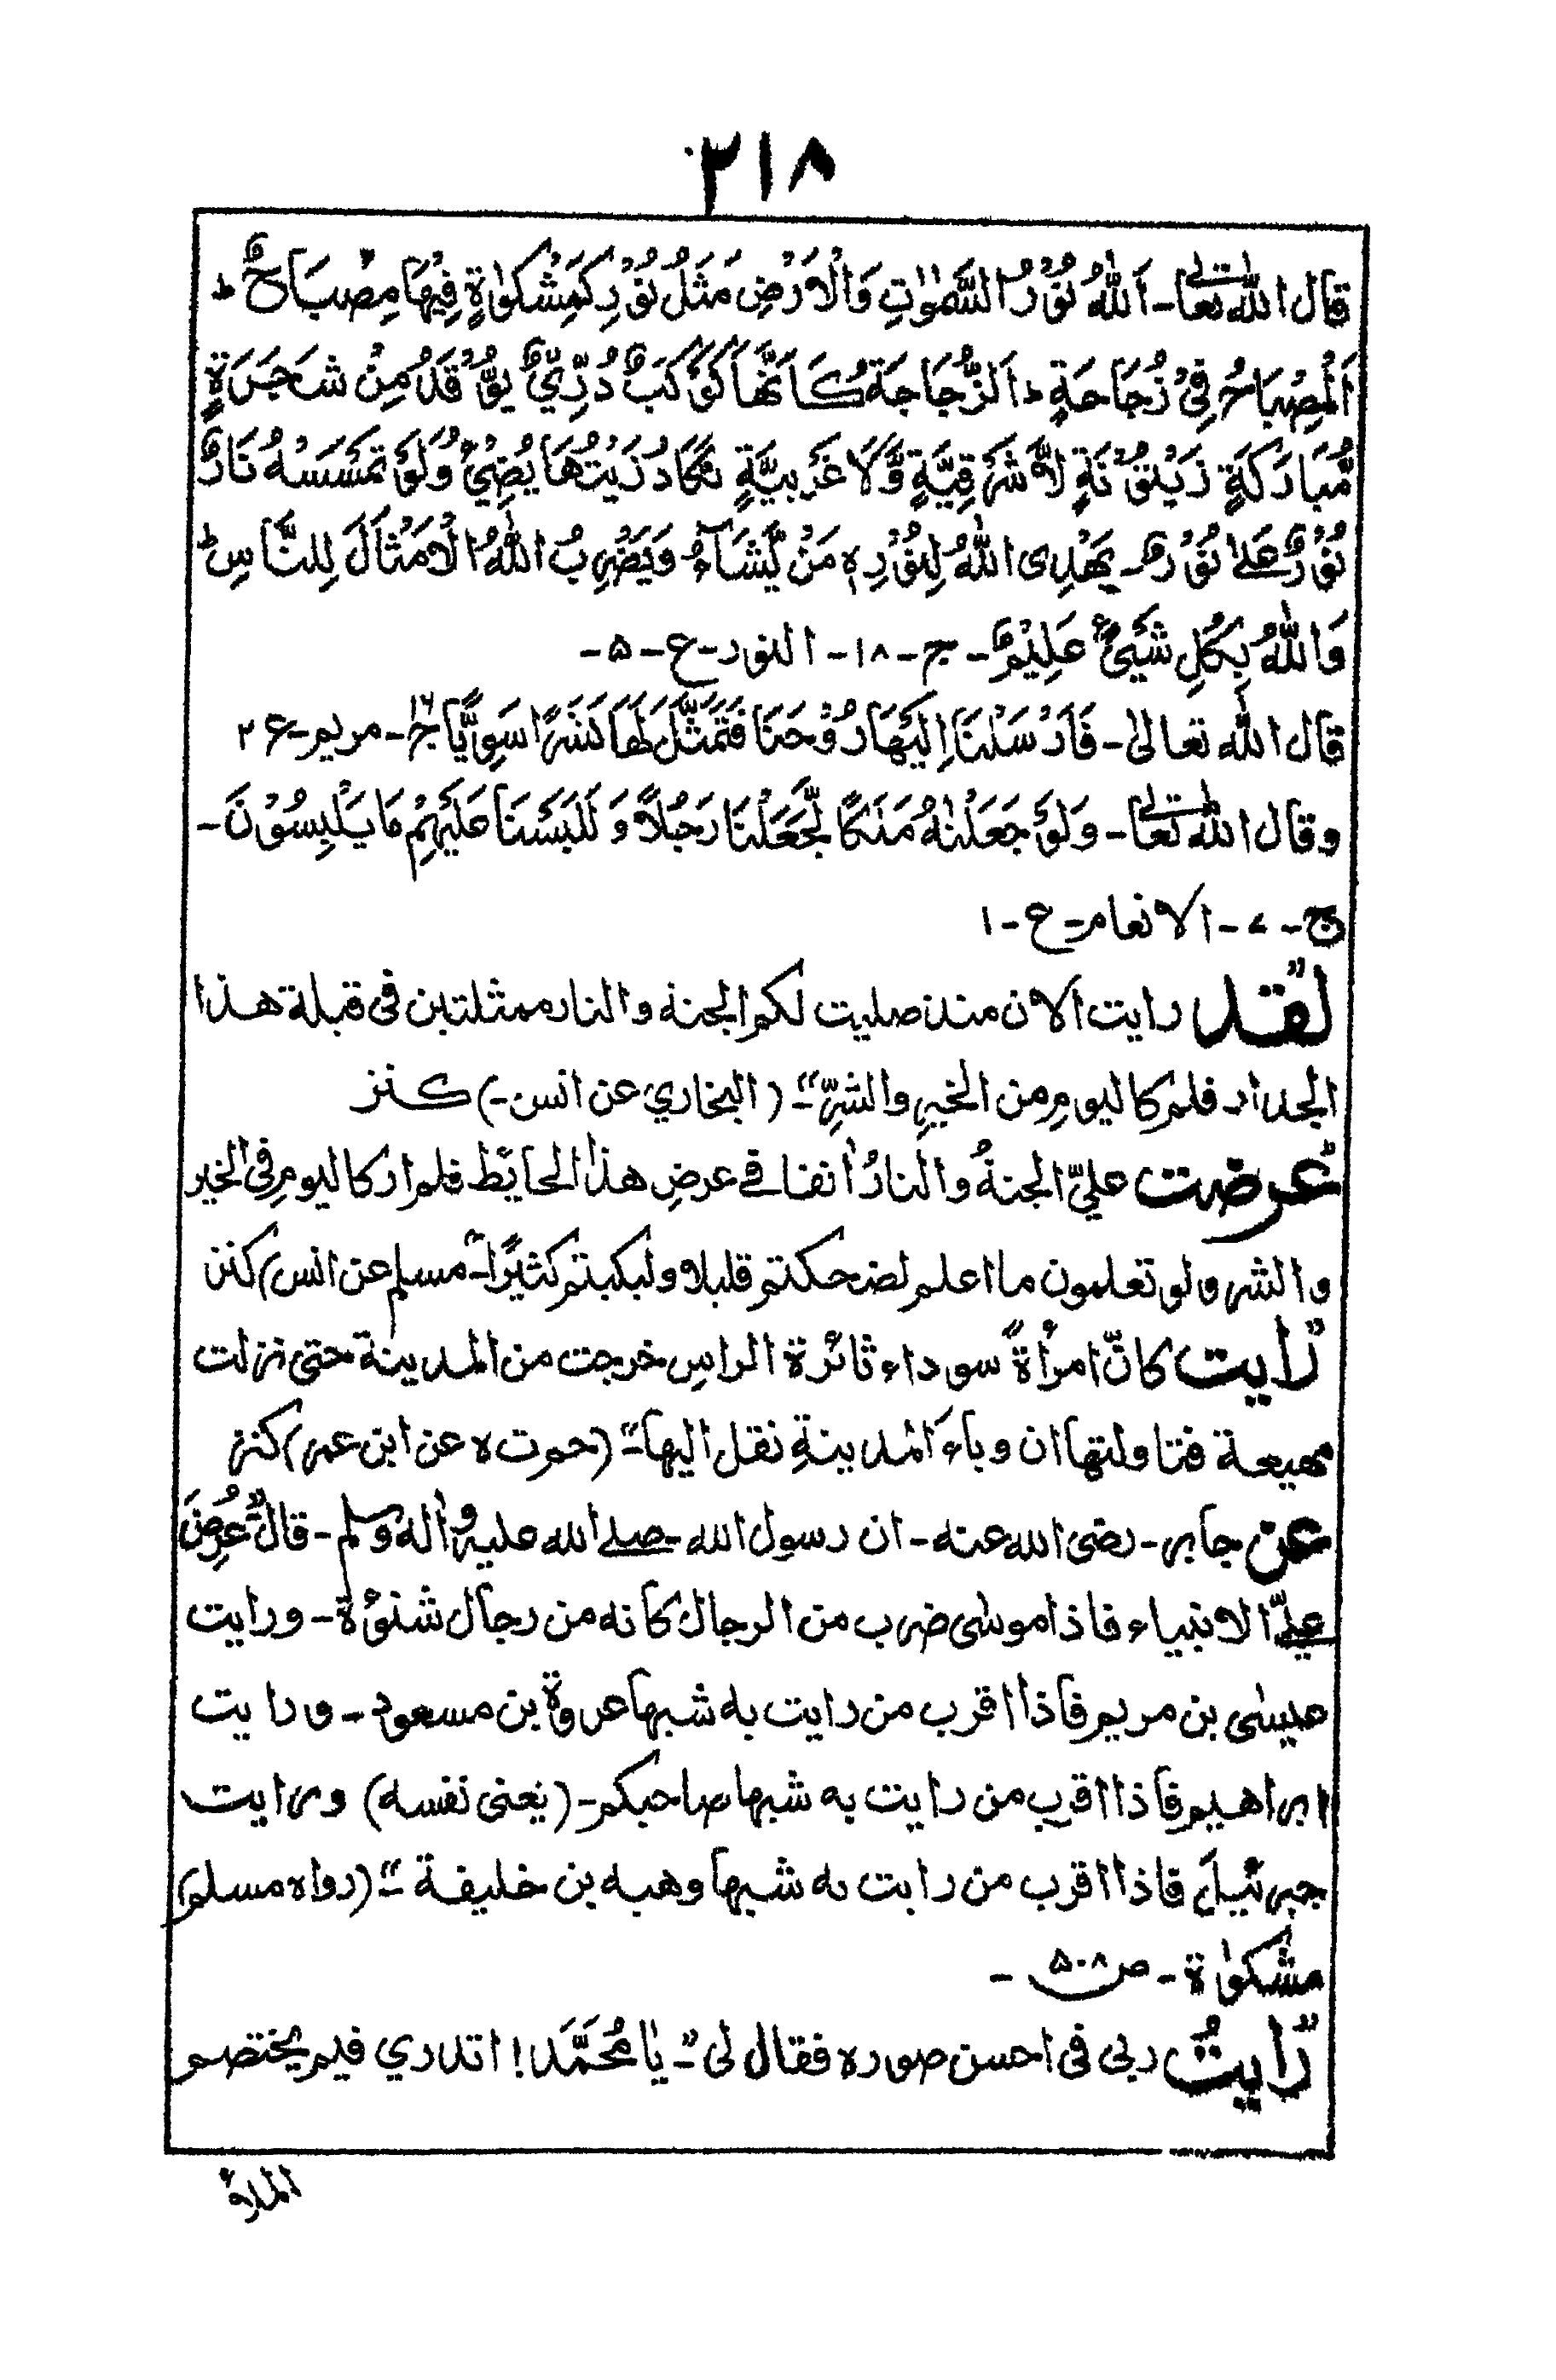 ٢١٨
قال الله تعالى ـ اَللّٰهُ نُوْرُ السَّمٰوٰتِ وَالْاَرْضِ مَثَلُ نُوْرِ كَمِشْكٰوةٍ فِيْهَا مِصْبَاحٌ ط
اَلْمِصْبَاحُ فِيْ زُجَاجَةٍ ط اَلزُّجَاجَةُ كَاَنَّهَا كَوْكَبٌ دُرِّيٌّ يُوْقَدُ مِنْ شَجَرَةٍ
مُّبَارَكَةٍ زَيْتُوْنَةٍ لَّا شَرْقِيَّةٍ وَّلَا غَرْبِيَّةٍ يَكَادُ زَيْتُهَا يُضِيْٓءُ وَلَوْ تَمْسَسْهُ نَارٌ
نُوْرٌ عَلٰى نُوْرٍ ـ يَهْدِى اللّٰهُ لِنُوْرِهٖ مَنْ يَّشَآءُ ـ وَيَضْرِبُ اللّٰهُ الْاَمْثَالَ لِلنَّاسِ ط
وَاللّٰهُ بِكُلِ شَيْئٍ عَلِيْمٌ ـ ج ـ ١٨ ـ النور ـ ع ـ ۵ ـ
قال الله تعالىٰ ـ فَاَرْسَلْنَا اِلَيْهَا رُوْحَنَا فَتَمَثَّلَ لَهَا بَشَرًا سَوِيًّا ج١٦ ـ مريم ـ ع ٢
وقال الله تعالى ـ وَلَوْ جَعَلْنٰهُ مَلَكًا لَّجَعَلْنَا رَجُلًا وَ لَلَبَسْنَا عَلَيْهِمْ مَا يَلْبِسُوْنَ ـ
ج ـ ٧ ـ الانعام ـ ع ـ ١
"لقد رايت الان منذ صليت لكم الجنة والنار ممثلتين فى قبلة هذا
الجدار فلم كاليومِ من الخيرِ والشرِّ" ـ (البخاري عن انس ـ) كنز
"عرضت عليّ الجنةُ والنارُ اٰنفا فے عرضِ هذا الحائط فلم ار كاليومِ فى الخير
والشر ولو تعلمون ما اعلم لضحكتم قليلا ولبكيتم كثيرًا" ـ مسلم عن انس) كنز
"رايت كانّ امرأةً سوداء ثائرة الراسِ خرجت من المدينة حتى نزلت
مهيعة فتاولتها ان وباءَ المدينةِ نقل اليها" ـ (حم ت ه عن ابن عمر) كنز
عن جابر ـ رضى الله عنه ـ ان رسول الله ـ صلے الله عليه واٰله وسلم ـ قال "عُرِضَ
علىّ الانبياء فاذا موسٰى ضرب من الرجال كانه من رجال شنوءة ـ ورايت
عيسٰى بن مريم فاذا اقرب من رايت به شبها عروة بن مسعود ـ ورايت
ابراهيم فاذا اقرب من رايت به شبها صاحبكم ـ (يعنى نفسه) ورايت
جبرئيل فاذا اقرب من رايت به شبها وهبه بن خليفة" ـ (رواه مسلم)
مشكوٰة ـ ص ۵٠٨ ـ
"رايتُ ربى فى احسن صوره فقال لى" ـ يا مُحَمَّدَ! اتدري فيم يختصم
الملاءُ